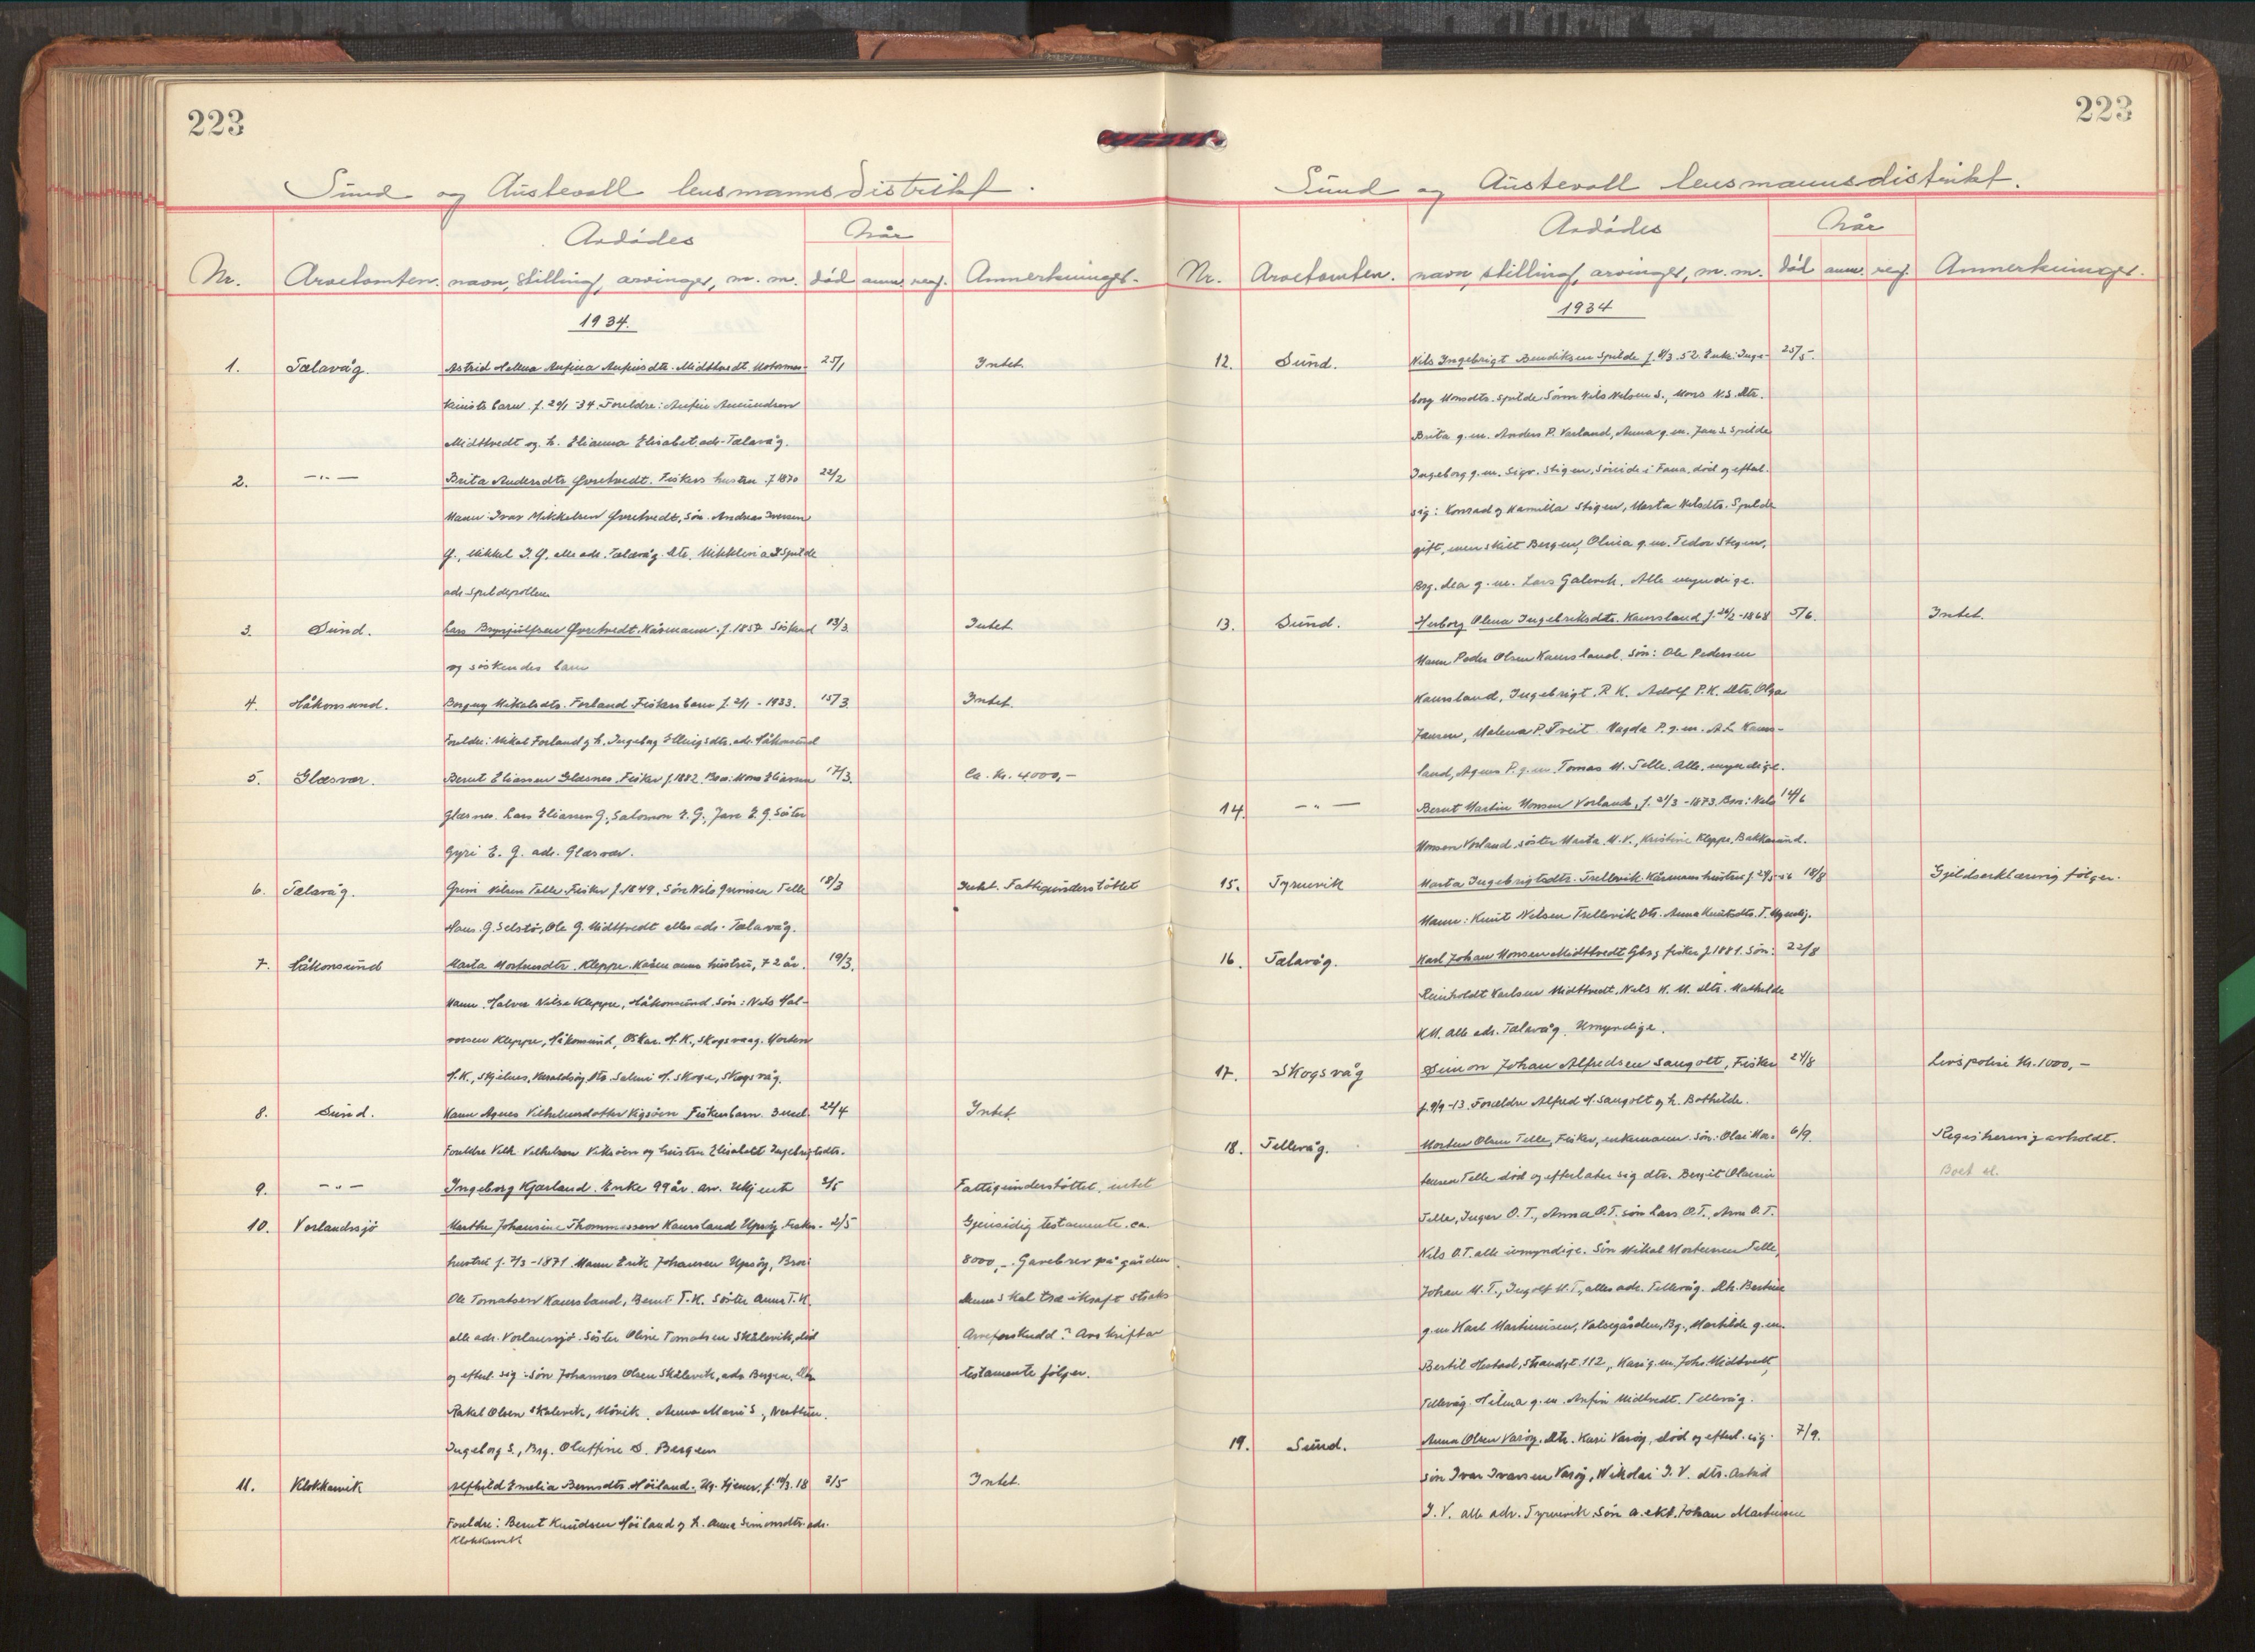 223
Sund og Austevoll lensmannsdistrikt.
Avdødes
Når
Nr. Arvetomten. navn, stilling, arvinger, m. m. død anm. reg. Anmerkninger.
1934.
1. Tælavåg. Astrid Helena Anfina Anfinsdtr. Midttvedt Motormas- 25/1 Intet.
kinists barn f. 20/1-34. Foreldre: Anfin Amundsen
Midttvedt og h. Elianna Elisabet adr. Tælavåg.
2. -"- Brita Andersdtr. Øvretvedt. Fiskers hustru f 1870 22/2
Mann: Ivar Mikkelsen Øvretvedt, søn. Andreas Iversen
Ø., Mikkel I. Ø. alle adr. Tælavåg. dtr. Spilde
adr. Spildepollen
3. Sund. Lars Brynjulfsen Øvretvedt. Kårmann. f. 1857 Søskend 13/3. Intet.
og søskendes barn
4. Håkonsund. Borgny Mikalsdtr. Forland Fiskers barn f. 2/1 - 1933. 15/3. Intet.
Foreldre: Mikal Forland og h. Ingeborg Ellingsdtr. adr. Håkonsund
5. Glæsvær. Bernt Eliassen Glæsnes. Fisker f. 1882. Bror: Mons Eliassen 17/3. Ca. kr. 4000,-
Glæsnes. Lars Eliassen G., Salomon E. G., Jens E. G. Søster
Gyri E. G. adr. Glæsvær.
6. Tælavåg. Grim Nilsen Telle. Fisker f. 1849. Søn Nils Grimsen Telle 18/3 Intet. Fattigunderstøttet
Hans. G. Selstø, Ole G. Midttvedt alles adr. Tælavåg.
7. Håkonsund Marta Mortensdtr. Kleppe. Kårmanns hustru, 72 år. 19/3.
Mann. Halvor Nilsen Kleppe, Håkonsund. Søn: Nils Hal-
vorsen Kleppe, Håkonsund, Oskar. H. K., Skogsvaag. Morten
H. K., Skjelnes, dtr. Salmi H. Skoge, Skogsvåg.
8. Sund. Agnes Vilhelmsdotter Vigsøen Fiskers barn. 22/4 Intet.
Foreldre Vilh. Vilhelmsen Viksøen og hustru Elisabet Ingebrigtsdtr.
9. -"- Ingeborg Kjørland. Enke 99 år. arv. Ukjent 3/5 Fattigunderstøttet, intet
10. Vorlandsjø Marthe Johansine Thommassen Kaursland Upsøy, Fiskers- 2/5 Gjensidig testamente. ca.
hustru f. 7/3 - 1871. Mann Erik Johansen Upsøy, Bror: 8000,- Gavebrev på gården
Ole Tomassen Kaursland, Bernt T. K. Søster Anna T. K. denne skal træ ikraft straks
alle adr. Vorlandsjø. Søster Oline Tomassen Skålevik, død Arveforskudd? Avskrift av
og efterl. sig: Søn Johannes Olsen Skålevik, adr. Bergen. Dtr. testamente følger.
Rakel Olsen Skålevik, Anna Marie S., Nesttun.
Ingeborg S., Brg. Oluffine S. Bergen
11. Klokkarvik Alfhild Emelia Berntsdtr. Høiland. Ug. tjener, f. 14/3. 18 3/5 Intet.
Foreldre: Bernt Knudsen Høiland og h. Anna Simonsdtr. adr.
Klokkarvik
223
Sund og Austevoll lensmannsdistrikt.
Avdødes
Når
Nr. Arvetomten. navn, stilling, arvinger, m. m. død anm. reg. Anmerkninger.
1934
12. Sund. Nils Ingebrigt Bendiksen Spilde f. 4/3. 52. Enke: Inge- 25/5.
borg Monsdtr. Spilde Sønn Nils Nelsen S., Mons N. S. dtr.
Brita g. m. Anders P. Vorland, Anna g. m. Jan S. Spilde
Ingeborg g. m. Stigen, Søreide i Fana, død og efterl.
sig: Konrad og Kamilla Stigen, Marta Nilsdtr. Spilde
gift, men skilt Bergen, Olina g. m. Fedor Stegen,
Brg. dea g. m. Lars Galevik. Alle myndige.
13. Sund. Herborg Olena Ingebriktsdtr. Kaursland f. 24/2-1868 5/6. Intet.
Mann Peder Olsen Kausland. Søn: Ole Pedersen
Kaursland, Ingebrigt. P. K. Adolf P. K. dtr. Olga
Jansen, Malena P. Treit. Magda P. g. m. A. L. Kaurs-
land, Agnes P. g. m. Tomas M. Telle. Alle. myndige.
14. -"- Bernt Martin Monsen Vorland, f. 21/3 - 1873. Bror: Nils 14/6
Monsen Vorland, søster Marta M. V., Kristine Kleppe, Bakkasund.
15. Tyrnevik Marta Ingebrigtsdtr. Trellevik. Kårmanns hustru f. 18/8 Gjeldserklæring følger.
Mann: Knut Nilsen Trellevik Dtr. Anna Knutsdtr. T. Myndig.
16. Tælavåg. Karl Johan Monsen Midttvedt Gbr. og fisker f. 1881. Søn: 22/8
Reinholdt Karlsen Midttvedt, Nils K. M. dtr. Mathilde
K M. alle adr. Tælavåg. Umyndige.
17. Skogsvåg Simon Johan Alfredsen Sangolt, Fisker 24/8 Livspolise Kr. 1000,-
f. 9/9-13. Foreldre Alfred H. Sangolt og h. Bothilde.
18. Tellevåg. Morten Olsen Telle, Fisker, enkemann. Søn: Olai Mor- 6/9. Registrering avholdt.
tensen Telle død og efterlater sig dtr. Bergit Olsen Boet
Telle, Inger O. T., Anna O. T. søn Lars O. T. Arne O. T.
Nils O. T. alle umyndige. Søn Mikal Mortensen Telle,
Johan M. T., Ingolf M. T., alles adr. Tellevåg. Dtr. Bertine
g. m. Karl Martinisen, Valsegården, Bg., Martilde g. m.
Bertil Hestad, Strandgt. 112, Kari g. m. Johs Midtvedt,
Tellevåg. Hilma g. m. Anfin Midtvedt. Tellevåg.
19. Sund. Anna Olsen Varøy. dtr. Kari Varøy, død og efterl. sig. 7/9.
søn Ivar Ivarsen Varøy, Nikolai I. V. dtr. Astrid
I. V. alle adr. Tyrnevik. Søn a. ekt. Johan Martinsen